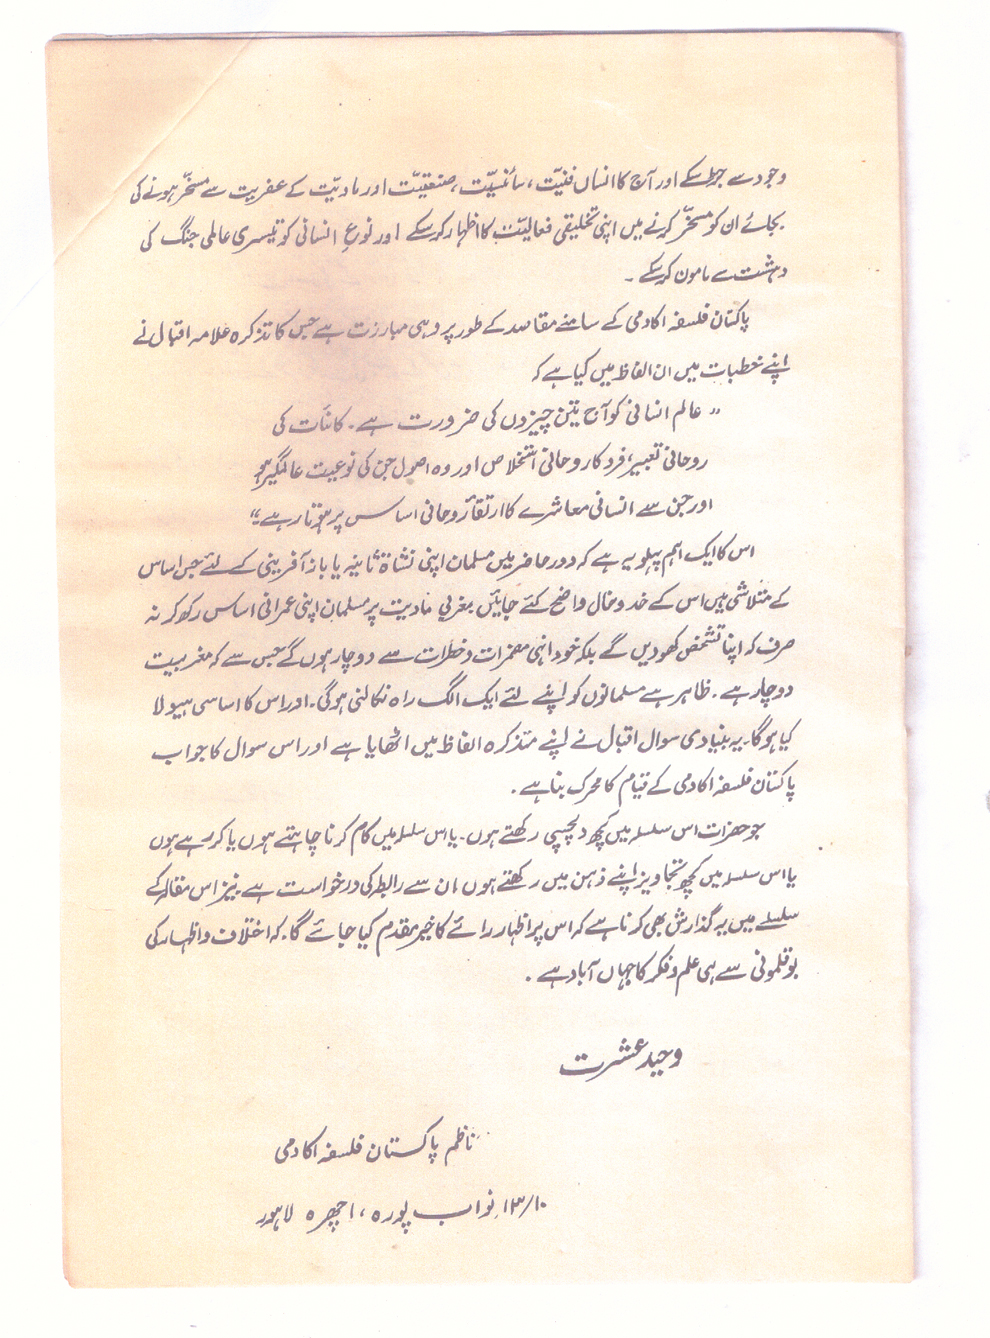 وجود سے جڑ سکے اور آج کا انسان فنیّت، سائنسیّت، صنعتیّت اور مادیّت کے عفریت سے مسخّر ہونے کی
بجائے ان کو مسخّر کرنے میں اپنی تخلیقی فعالیّت کا اظہار کر سکے اور نوعِ انسانی کو تیسری عالمی جنگ کی
دہشت سے مامون کر سکے ۔
پاکستان فلسفہ اکادمی کے سامنے مقاصد کے طور پر وہی مبارزت ہے جس کا تذکرہ علامہ اقبال نے
اپنے خطبات میں ان الفاظ میں کیا ہے کہ
" عالم انسانی کو آج تین چیزوں کی ضرورت ہے ۔ کائنات کی
روحانی تعبیر، فرد کا روحانی استخلاص اور وہ اصول جن کی نوعیت عالمگیر ہو
اور جن سے انسانی معاشرے کا ارتقأ روحانی اساس پر ہوتا رہے "
اس کا ایک اہم پہلو یہ ہے کہ دور حاضر میں مسلمان اپنی نشاۃ ثانیہ یا باز آفرینی کے لئے جس اساس
کے متلاشی ہیں اس کے خد و خال واضح کئے جائیں مغربی مادیت پر مسلمان اپنی عمرانی اساس رکھ کر نہ
صرف کہ اپنا تشخص کھو دیں گے بلکہ خود انہی مضمرات و خطرات سے دو چار ہوں گے جس سے کہ مغربیت
دو چار ہے ۔ ظاہر ہے مسلمانوں کو اپنے لئے ایک الگ راہ نکالنی ہو گی ۔ اور اس کا اساسی ہیولا
کیا ہو گا ۔ یہ بنیادی سوال اقبال نے اپنے متذکرہ الفاظ میں اٹھایا ہے اور اس سوال کا جواب
پاکستان فلسفہ اکادمی کے قیام کا محرک بنا ہے ۔
جو حضرات اس سلسلہ میں کچھ دلچسپی رکھتے ہوں ۔ یا اس سلسلہ میں کام کرنا چاہتے ہوں یا کر رہے ہوں
یا اس سلسلہ میں کچھ تجاویز اپنے ذہن میں رکھتے ہوں ان سے رابطہ کی درخواست ہے ۔ نیز اس مقالہ کے
سلسلے میں یہ گذارش بھی کرنا ہے کہ اس پر اظہار رائے کا خیر مقدم کیا جائے گا ۔ کہ اختلاف و اظہار کی
بوقلمونی سے ہی علم و فکر کا جہاں آباد ہے ۔
وحید عشرت
ناظم پاکستان فلسفہ اکادمی
۱۳/۱۰ نواب پورہ ، اچھرہ لاہور